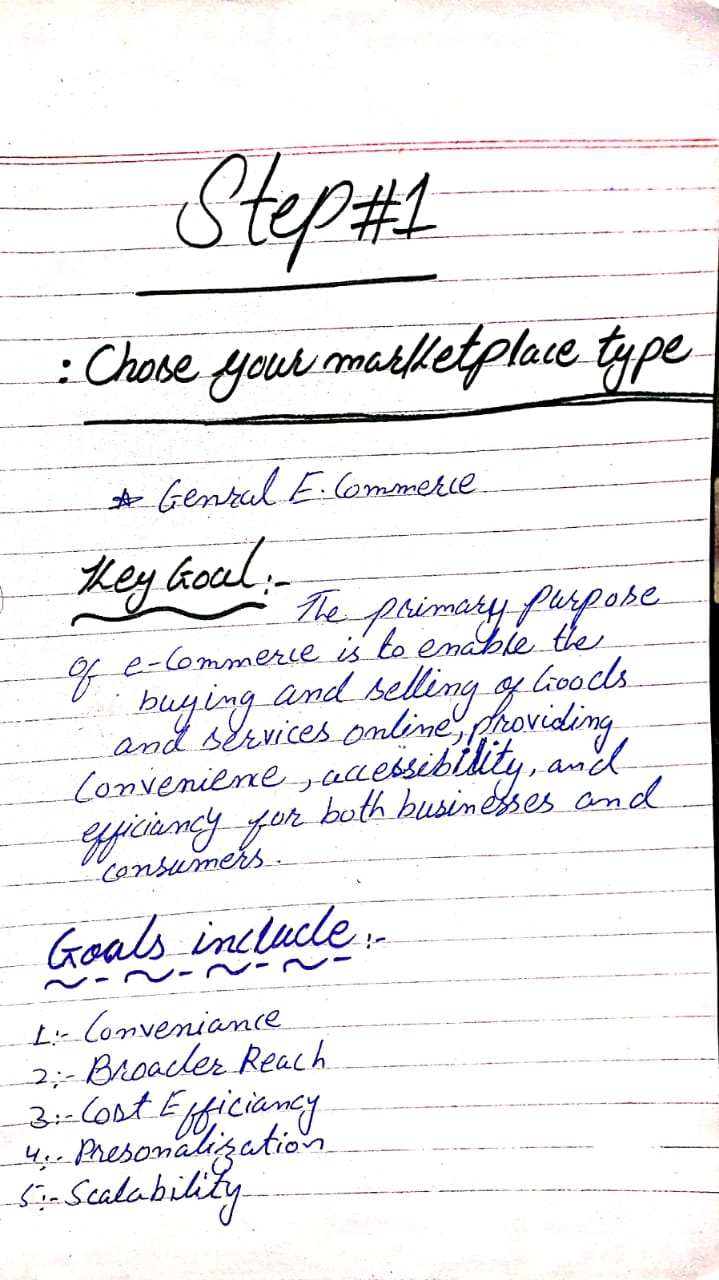 Step #1
: Chose your marketplace type
* Genral E. Commerce
Key Goal :-
The primary Purpose
of e-Commerce is to enable the
buying and selling of Goods
and services online, providing
Convenience, accessibility, and
efficiancy for both businesses and
consumers.
Goals include :-
1:- Conveniance
2:- Broader Reach
3:- Cost Efficiancy
4:- Presonalization
5:- Scalability